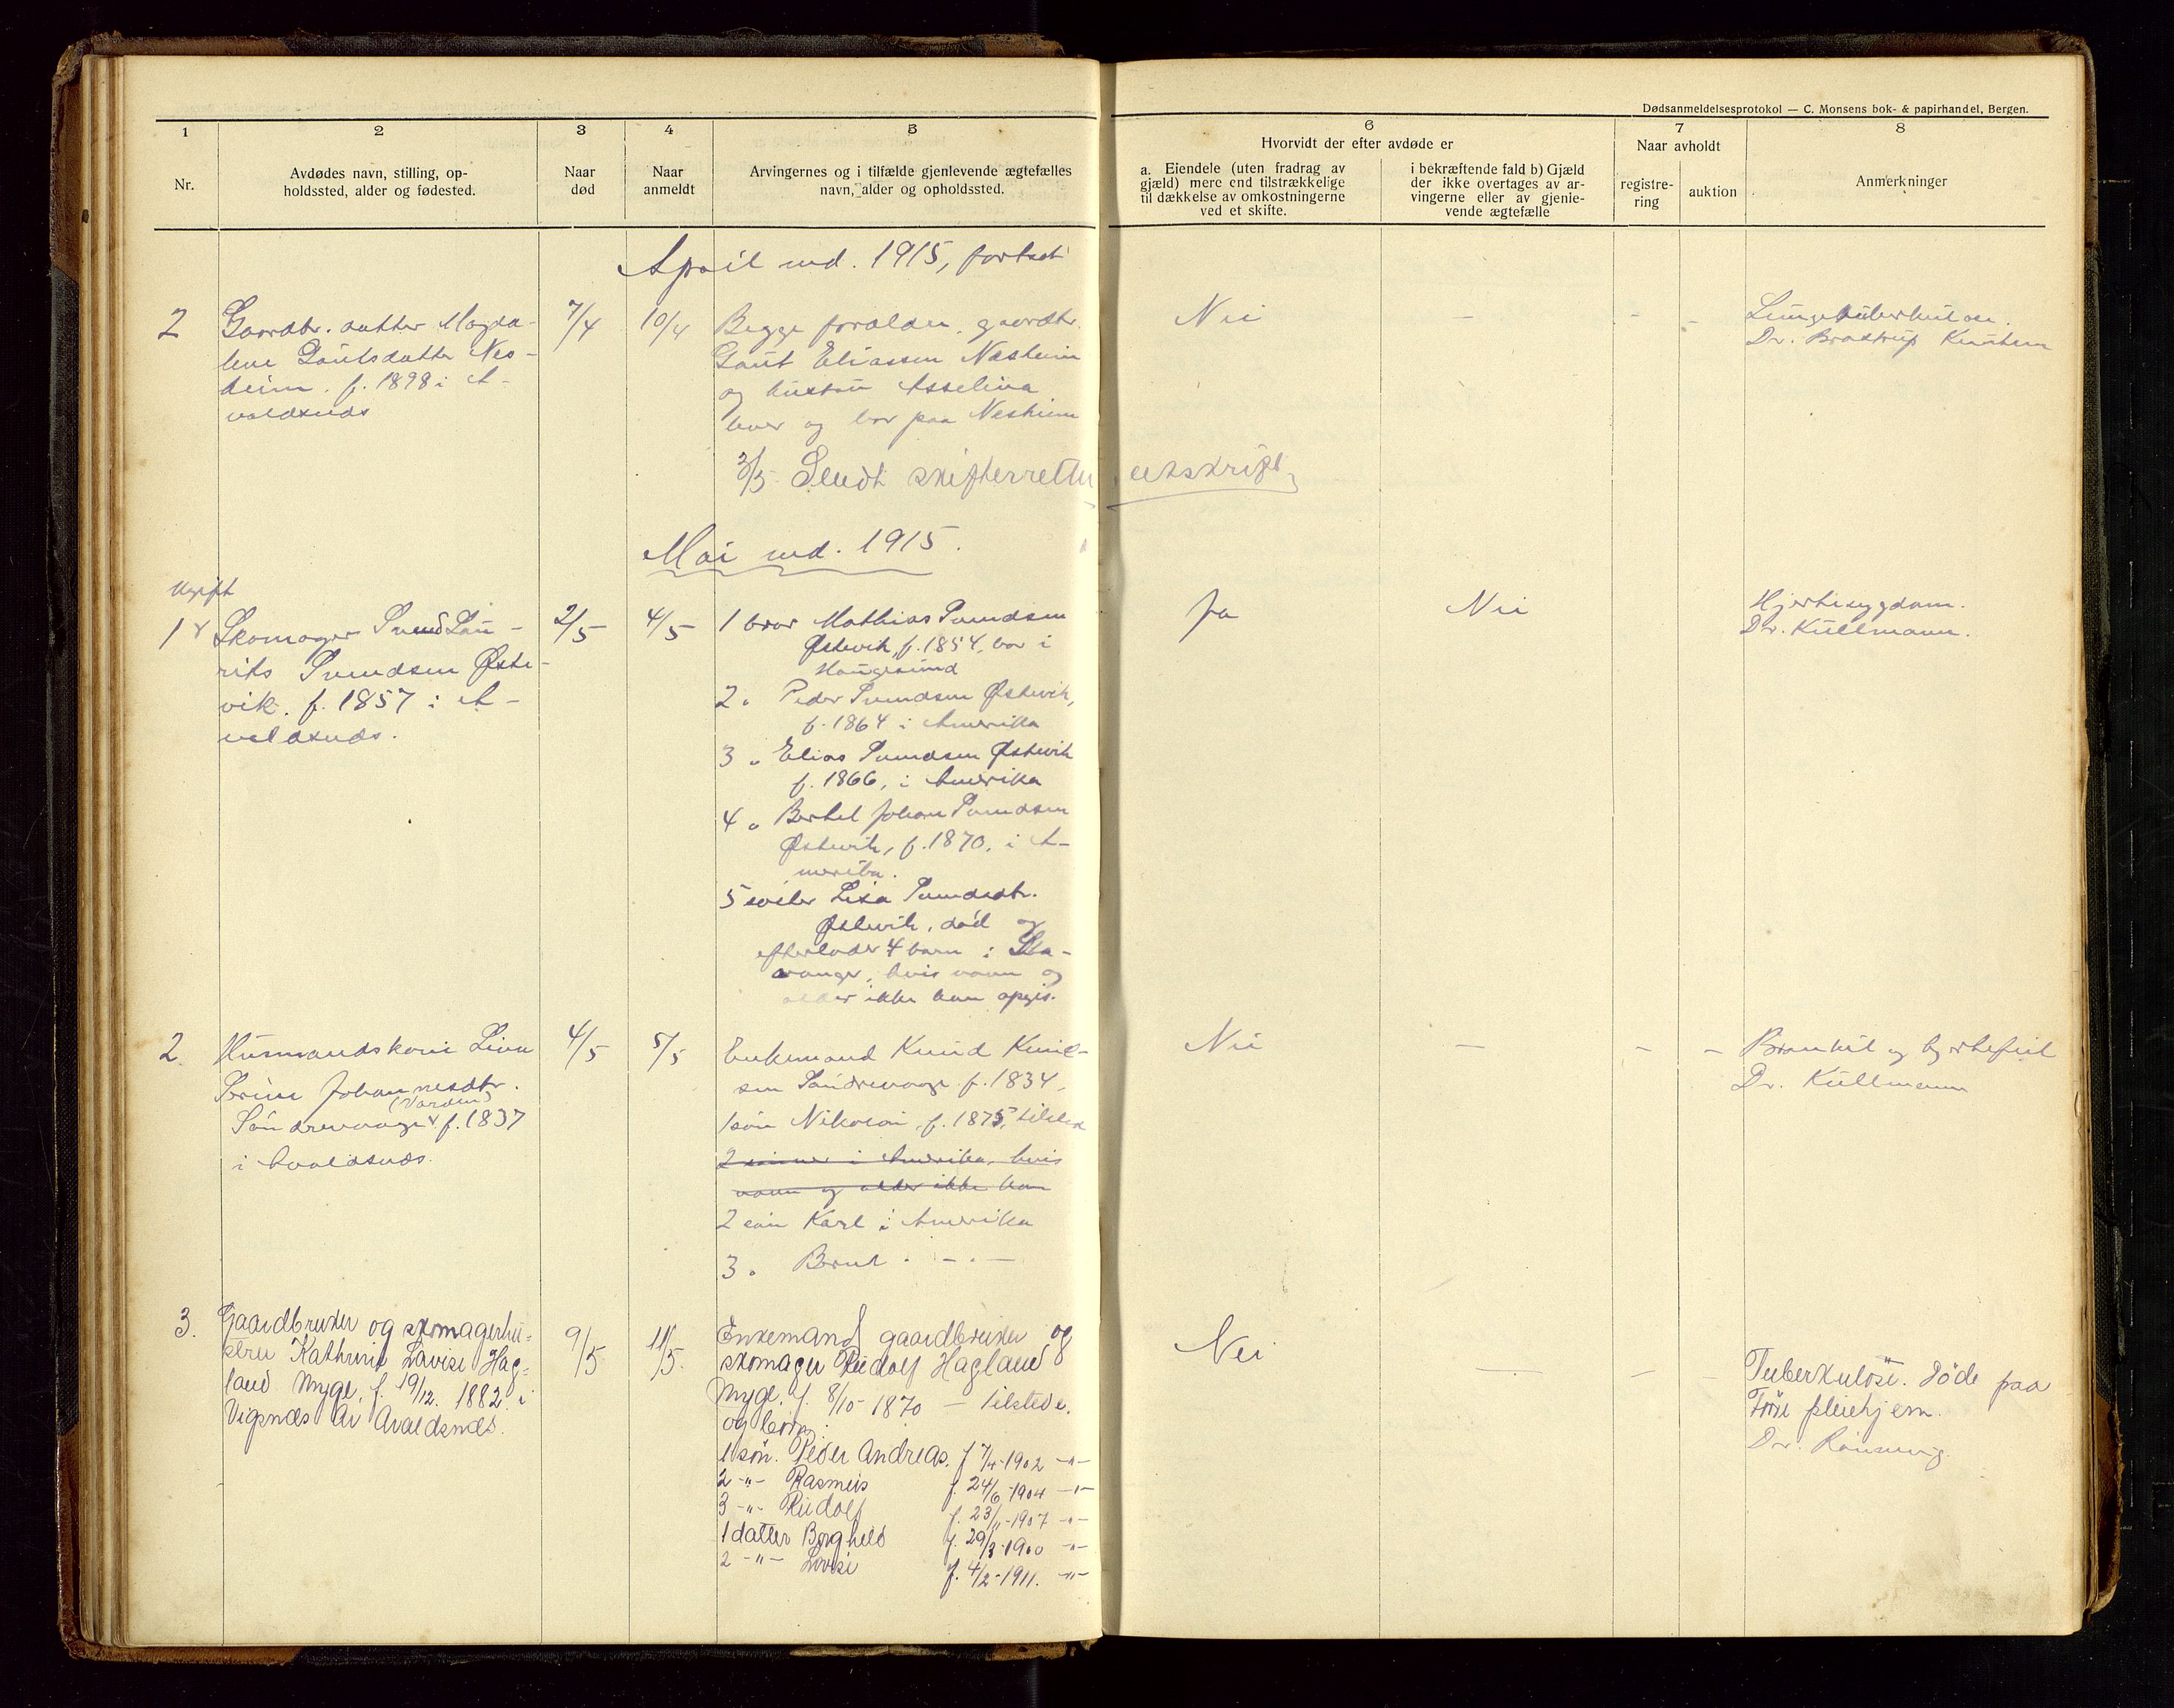 Dødsanmeldelsesprotokol — C. Monsens bok- & papirhandel, Bergen.
1 2 3 4 5 6 7 8
Nr.
Avdødes navn, stilling, op-
holdssted, alder og fødested.
Naar
død
Naar
anmeldt
Arvingernes og i tilfælde gjenlevende ægtefælles
navn, alder og opholdssted.
Hvorvidt der efter avdøde er
a. Eiendele (uten fradrag av
gjæld) mere end tilstrækkelige
til dækkelse av omkostningerne
ved et skifte.
i bekræftende fald b) Gjæld
der ikke overtages av ar-
vingerne eller av gjenle-
vende ægtefælle
Naar avholdt
registre-
ring
auktion
Anmerkninger
April md. 1915, fortsat
2
Gaardbr. datter Magda-
lene Gautsdatter Nes-
heim. f. 1898 i A-
valdsnds
7/4
10/4
Begge forældre, gaardbr.
Gaut Eliassen Nesheim
og hustru Asselina
lever og bor paa Nesheim
Nei
—
-
-
Lungetuberkulose.
Dr. Brostrup Knutsen
3/5 Sendt skifteretten utskrift
Mai md. 1915.
Ugift
1
Skomager Svend Lau-
rits Svendsen Øste-
vik. f. 1857 i A-
valdsnds.
2/5
4/5
1 bror Mathias Svendsen
Østevik, f. 1854, bor i
Haugesund
2 " Peder Svendsen Østevik,
f. 1864 i Amerika
3 " Elias Svendsen Østevik
f. 1866, i Amerika
4 " Bertel Johan Svendsen
Østevik, f. 1870, i A-
merika.
5 søster Lisa Svendsdtr.
Østevik, død og
efterlader 4 barn i Sta-
vanger, hvis navn og
alder ikke kan opgis.
Ja
Nei
Hjertesygdom.
Dr. Kullmann.
2
Husmandskone Lina
Serine Johannesdtr.
(Varden)
Søndrevaage f. 1837
i Avaldsnds.
4/5
5/5
Enkemand Knud Knud-
sen Søndrevaage f. 1834,
1 søn Nikolai, f. 1875, tilsted
2 sønner i Amerika, hvis
navn og alder ikke kan
2 søn Karl i Amerika
3 " Bernt " - " -
Nei
—
-
-
Bronkit og hjertefeil
Dr. Kullmann
3.
Gaardbruker og skomagerhu-
stru Kathrine Lovise Hag-
land Myge, f. 19/12. 1882 i
Vigsnæs av Avaldsnes.
9/5
11/5.
Enkemand gaardbruker og
skomager Rudolf Hagland
Myge, f. 8/10 1870 — tilstede.
og barn:
1 søn. Peder Andreas. f 7/4-1902 -"-
2 -"- Rasmus f. 24/6-1904 -"-
3 -"- Rudolf f. 23/11-1907 -"-
1 datter Borghild f. 29/3-1900 -"-
2 -"- Lovise f. 4/2-1911. -"-
Nei
—
-
-
Tuberkulose. Døde paa
Føre pleiehjem.
Dr. Rønnevig.